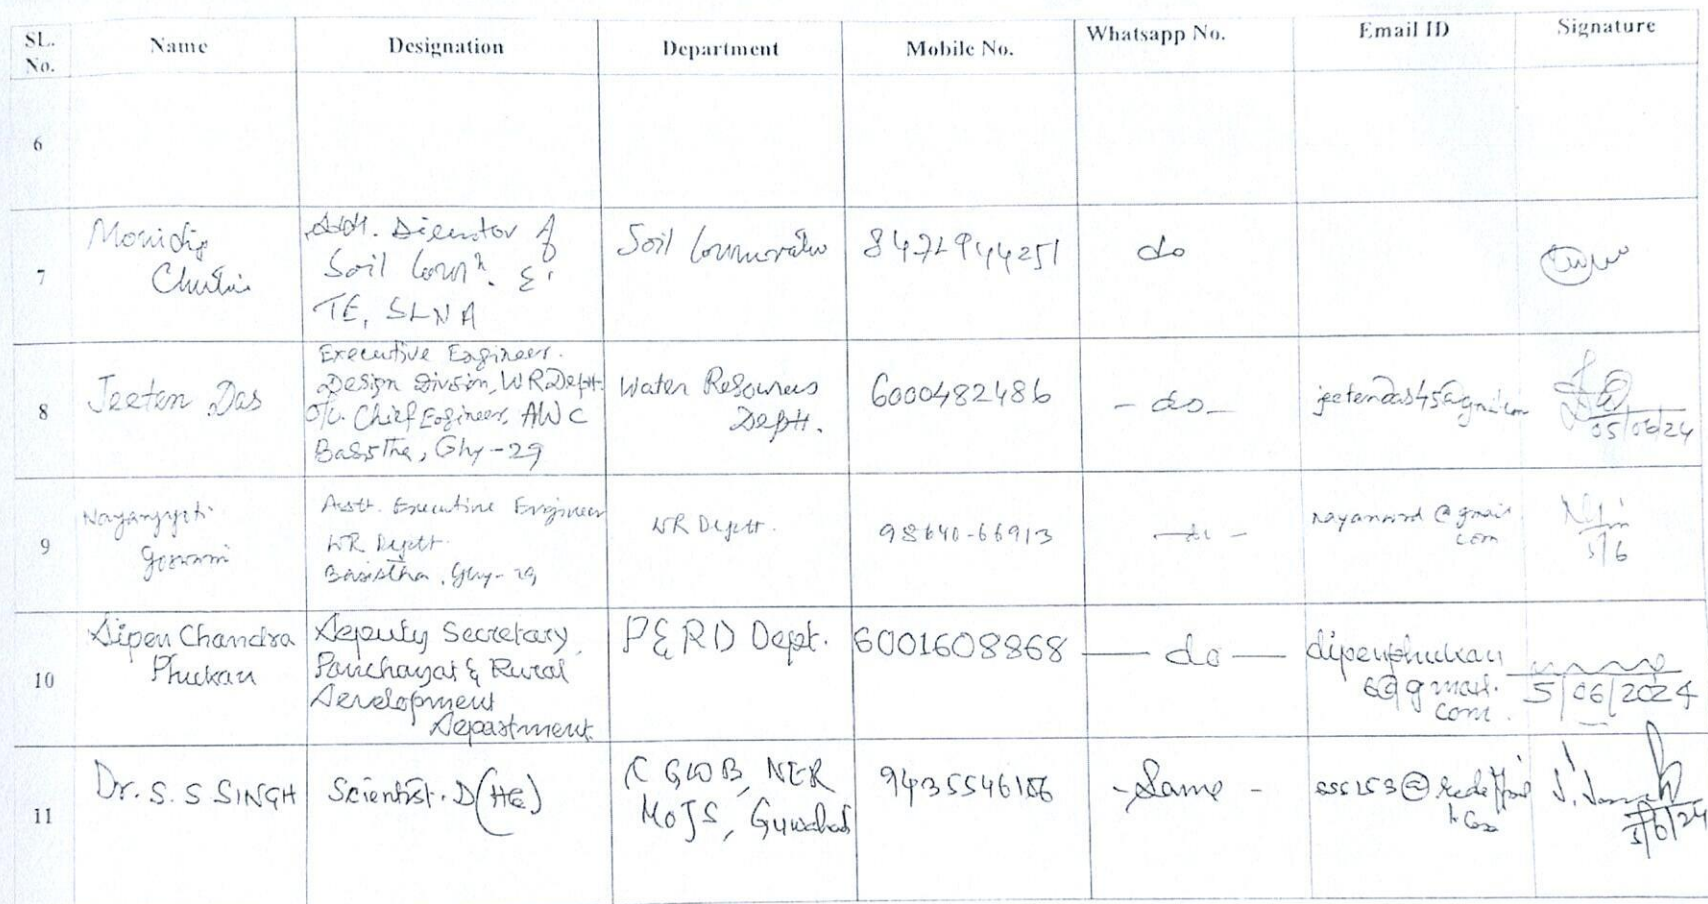 SL. No. Name Designation Department Mobile No. Whatsapp No. Email ID Signature
6
7
Chutia
Addl. Director of
Soil Consn. &
TE, SLNA
Soil
8471944251
do
8
Jeeten Das
Executive Engineer.
Design Division, WR Deptt.
O/o. Chief Engineer, AWC
Basistha, Ghy-29
Water Resources
Deptt.
6000482486
- do -
05/06/24
9
Nayanjyoti
Goswami
Asstt. Executive Engineer
WR Deptt.
Basistha, Ghy-29
WR Deptt.
98640-66913
- do -
5/6
10
Dipen Chandra
Phukan
Deputy Secretary,
Panchayat & Rural
Development
Department.
P&RD Dept.
6001608868
— do —
dipenphukan
6@gmail.
com.
5/06/2024
11
Dr. S. S SINGH
Scientist. D (HG)
CGWB, NER
MoJS, Guwahati
- Same -
5/6/24